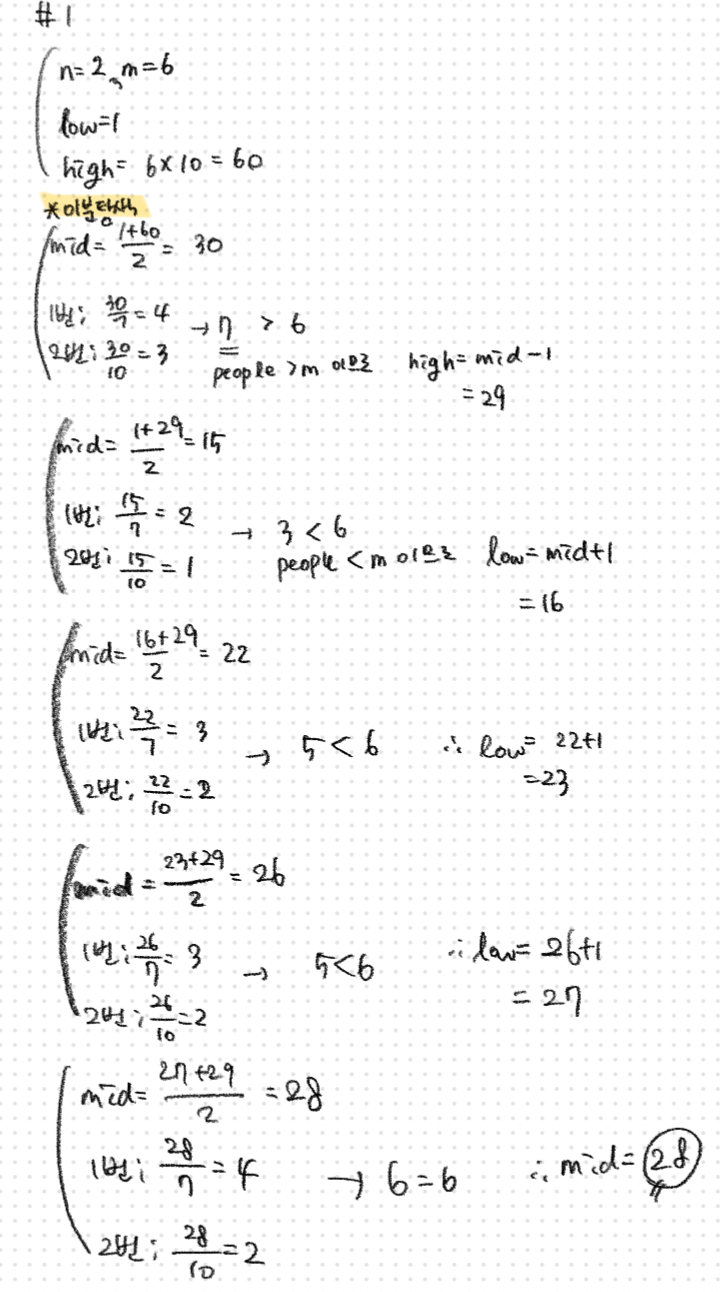 #1
n=2, m=6
low=1
high= 6×10=60
*이분탐색
mid= 1+60/2 = 30
1번; 30/7=4 → 7 > 6
2번; 30/10=3 people >m 이므로 high=mid-1
=29
mid= 1+29/2=15
1번; 15/7=2 → 3<6
2번; 15/10=1 people <m 이므로 low=mid+1
=16
mid= 16+29/2= 22
1번; 22/7= 3 → 5<6 ∴ low= 22+1
2번; 22/10=2 =23
mid = 23+29/2 = 26
1번; 26/7= 3 → 5<6 ∴ low= 26+1
2번; 26/10=2 = 27
mid= 27+29/2 =28
1번; 28/7=4 → 6=6 ∴ mid=28
2번; 28/10=2